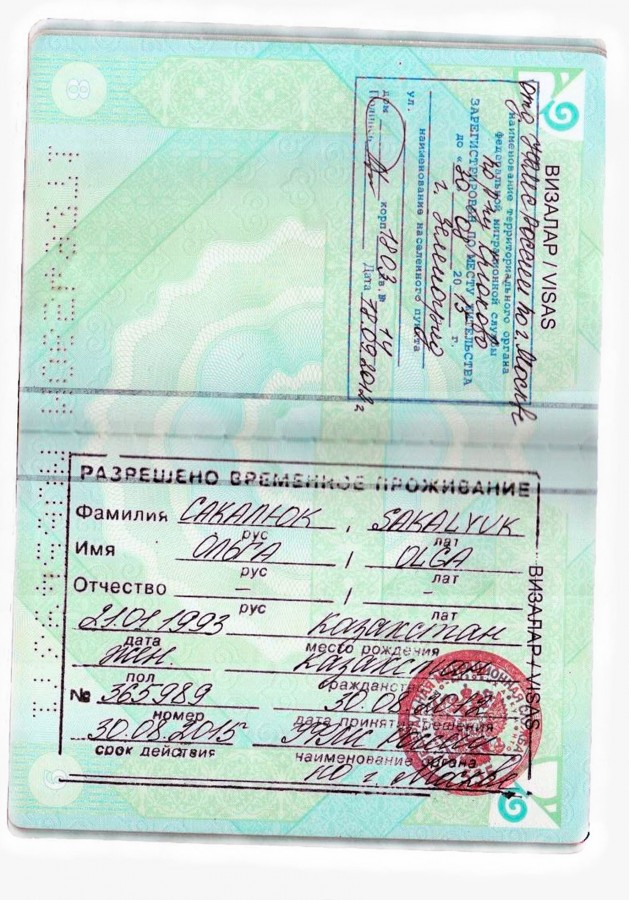 ВИЗАЛАР / VISAS
УФМС России по г. Москве
наименование территориального органа
федеральной миграционной службы
Крюково
ЗАРЕГИСТРИРОВАН ПО МЕСТУ ЖИТЕЛЬСТВА
до «30» 08 2015 г.
г. Зеленоград
наименование населенного пункта
ул.
дом корп. 1803 кв.№ 14
Подпись Дата 18.09.2012г
РАЗРЕШЕНО ВРЕМЕННОЕ ПРОЖИВАНИЕ
Фамилия САКАЛЮК / SAKALYUK
рус лат
Имя ОЛЬГА / OLGA
рус лат
Отчество – / –
рус лат
21.01.1993 Казахстан
дата место рождения
жен. Казахстан
пол гражданство
№ 365989 30.08.2012
номер дата принятия решения
30.08.2015 УФМС России
срок действия наименование органа
по г. Москве
ВИЗАЛАР / VISAS